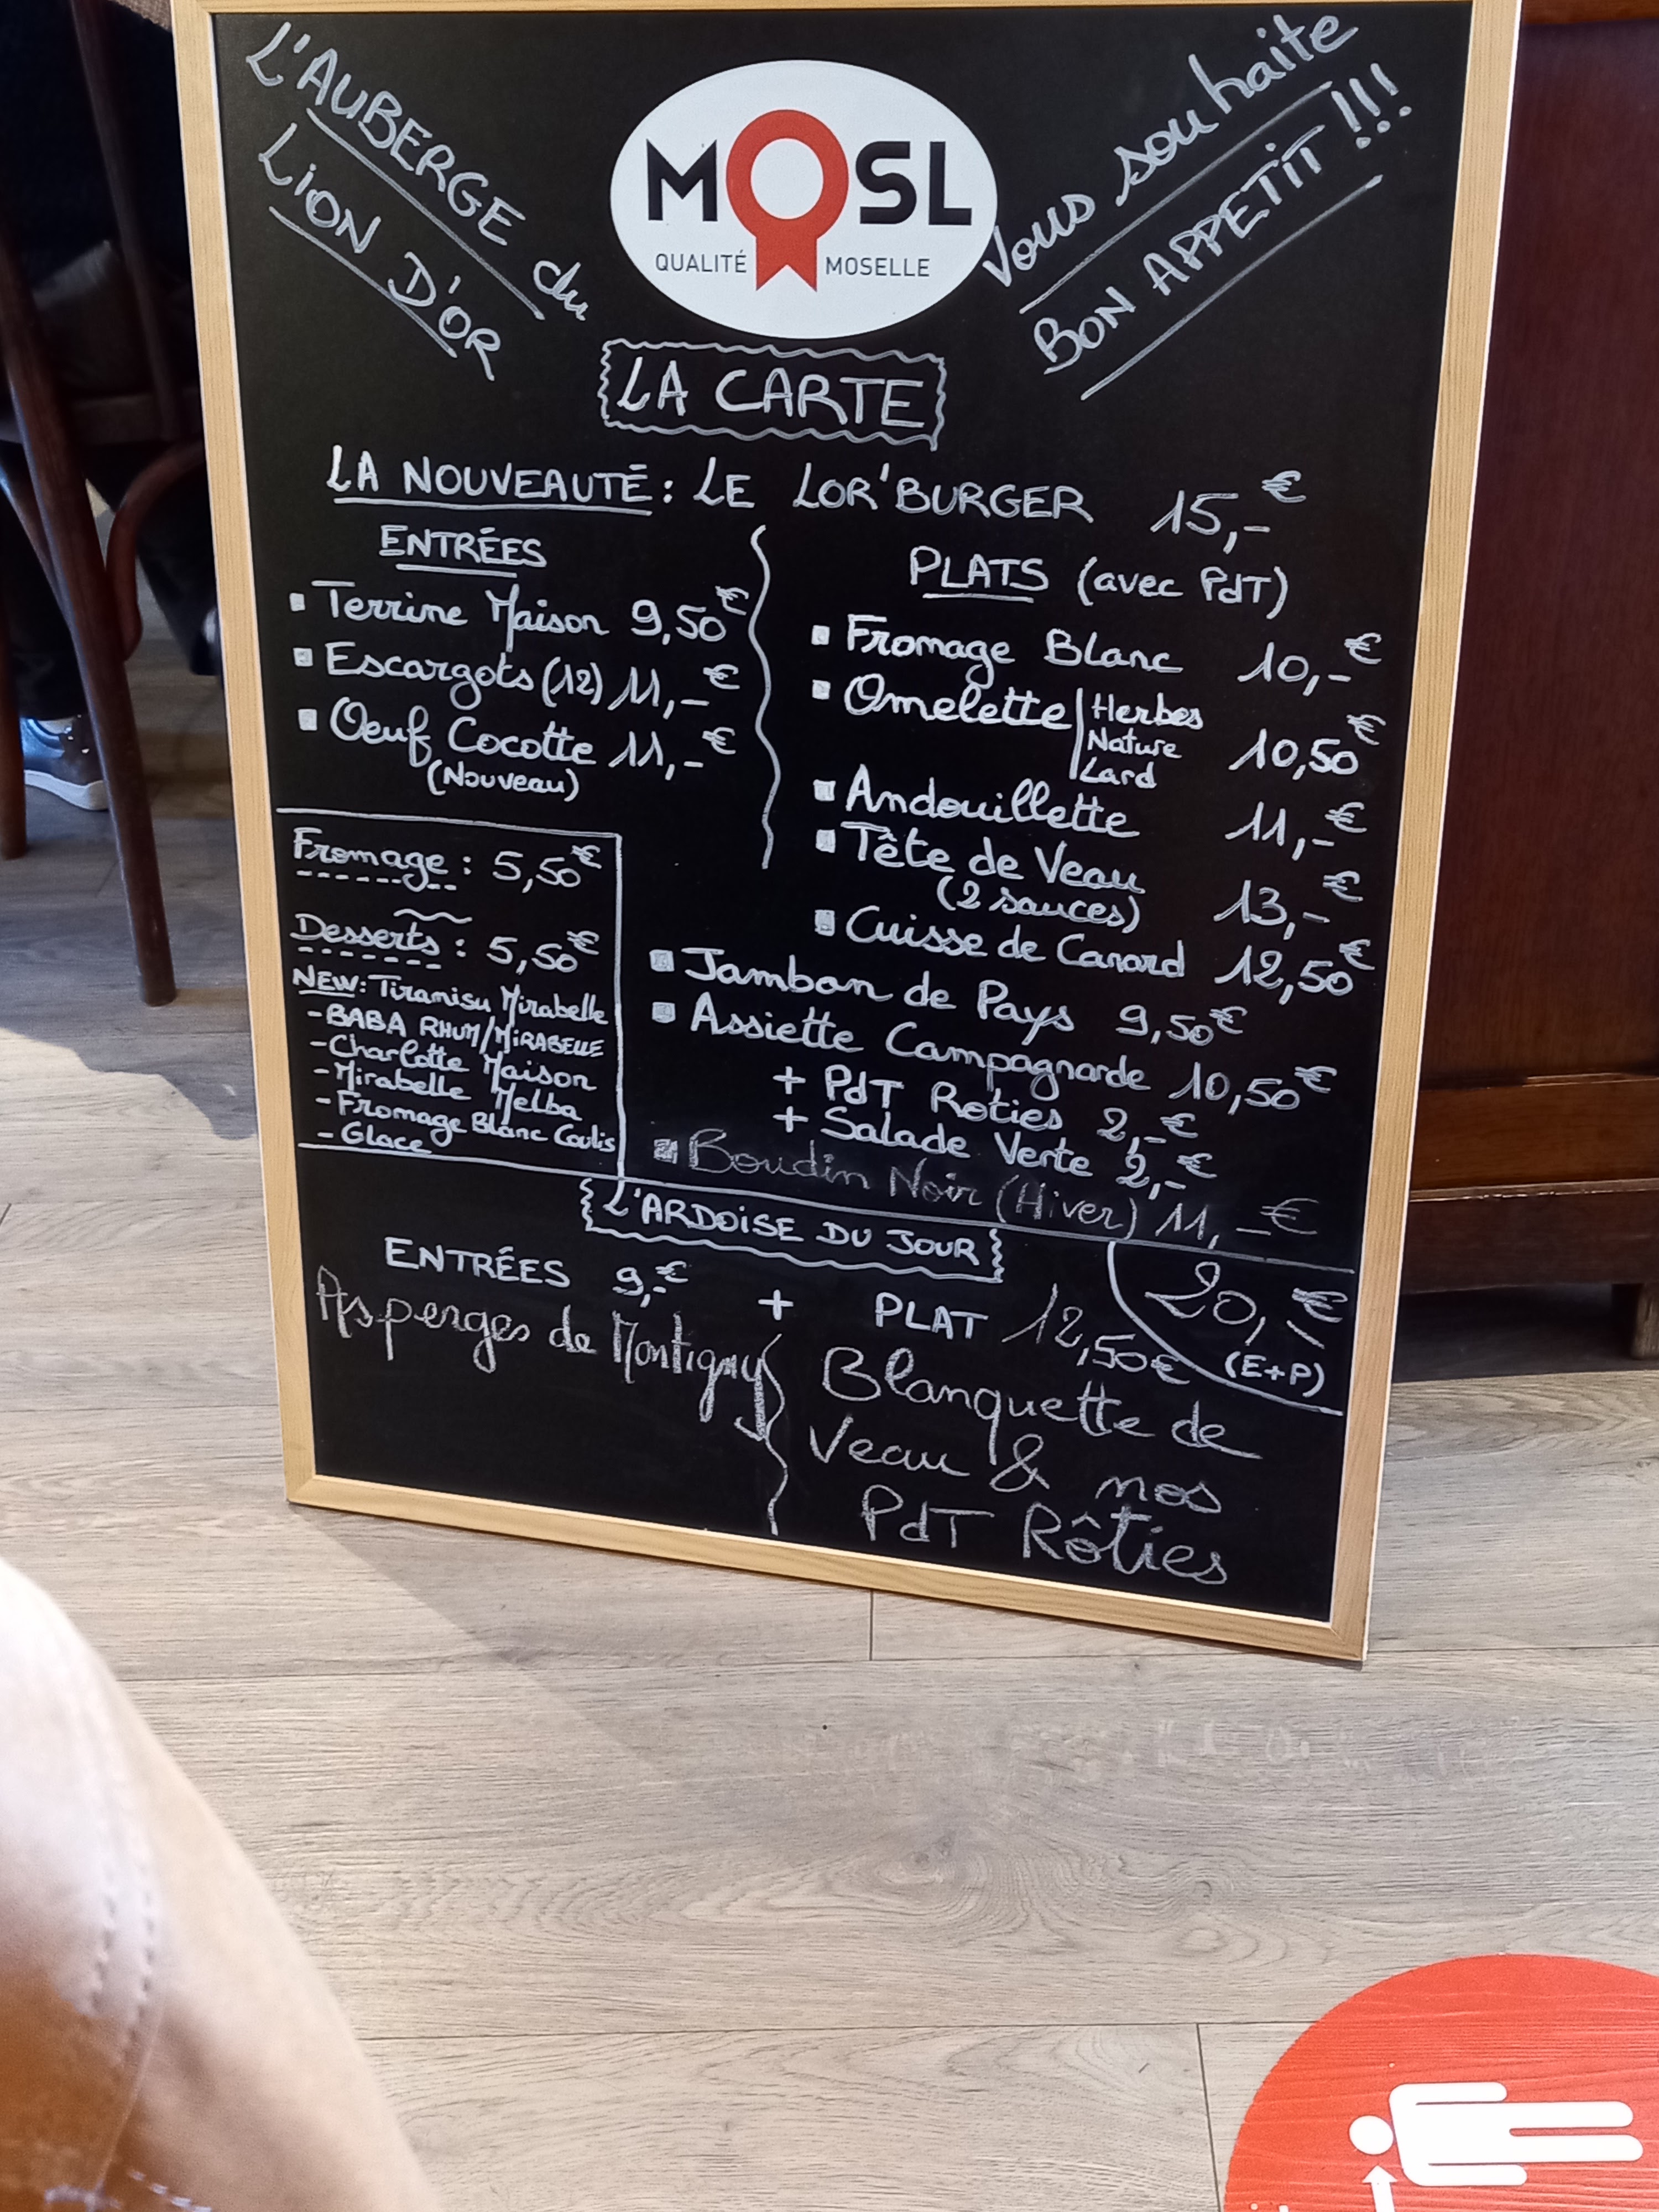 L'AUBERGE du
LION D'OR
MOSL
QUALITÉ MOSELLE
Vous souhaite
BON APPETIT !!!
LA CARTE
LA NOUVEAUTÉ : LE LOR'BURGER 15,-€
ENTRÉES
▪ Terrine Maison 9,50€
▪ Escargots (12) 11,-€
▪ Oeuf Cocotte 11,-€
(Nouveau)
PLATS (avec PdT)
▪ Fromage Blanc 10,-€
▪ Omelette Herbes
Nature 10,50€
Lard
▪ Andouillette 11,-€
▪ Tête de Veau
(2 sauces) 13,-€
▪ Cuisse de Canard 12,50€
▪ Jambon de Pays 9,50€
▪ Assiette Campagnarde 10,50€
+ PdT Roties 2,-€
+ Salade Verte 2,-€
▪ Boudin Noir (Hiver) 11,-€
Fromage : 5,50€
Desserts : 5,50€
NEW: Tiramisu Mirabelle
- BABA RHUM/MIRABELLE
- Charlotte Maison
- Mirabelle Melba
- Fromage Blanc Coulis
- Glace
L'ARDOISE DU JOUR
ENTRÉES 9,-€ + PLAT 12,50€
20,-€
(E+P)
Asperges de Montigny
Blanquette de
Veau & nos
PdT Rôties